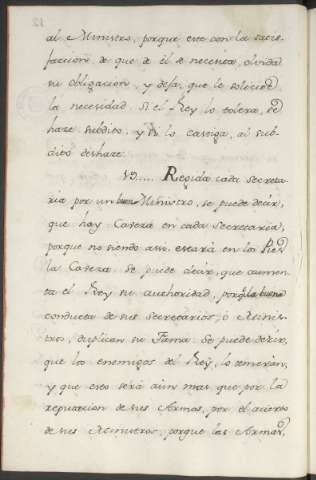 al Ministro, porque este con la satis-
faccion de que de èl se necesita, olvida
su obligacion, y deja, que le solicite
la necesidad. Si el Rey lo tolera, se
haze subdito, y si lo castiga, al sub-
dito deshaze.
19..... Regida cada secreta-
ria por un buen Ministro, se puede decir,
que hay Caveza en cada secretaria,
porque no siendo assi estarà en los Pies
la Caveza. Se puede decir, que aumen-
ta el Rey su authoridad, porq. la buena
conducta de sus secretarios, ò Minis-
tros, duplican su Fama. Se puede decir,
que los enemigos del Rey, lo temeràn,
y que esto serà aùn mas que por la
reputacion de sus Armas, por el acierto
de sus Ministros, porque las Armas,